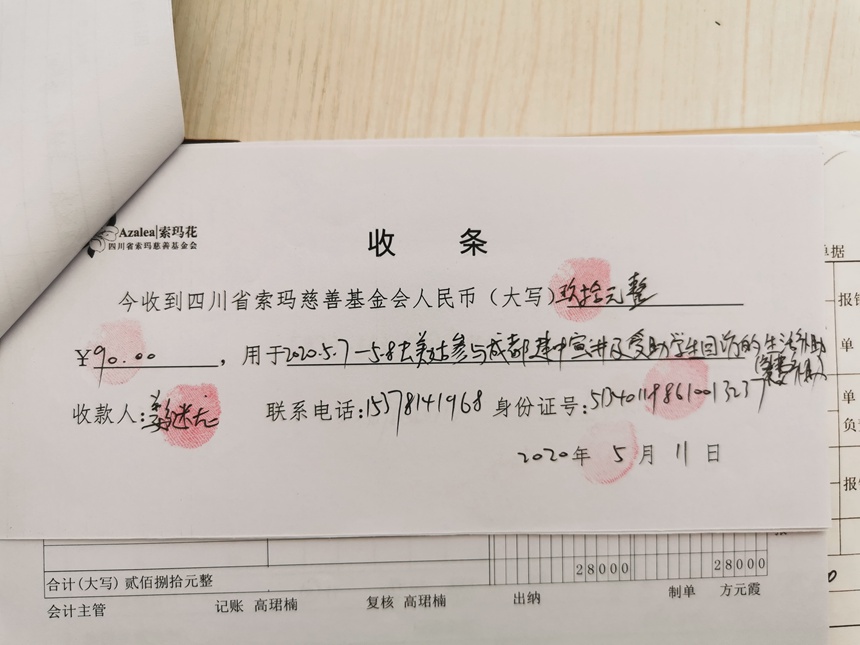 Azalea|索玛花
四川省索玛慈善基金会
收 条
今收到四川省索玛慈善基金会人民币（大写）玖拾元整
¥90.00，用于2020.5.7—5.8 参与成都 宣讲及受助学生回访的生活补助
收款人：
联系电话:15378141968 身份证号:
2020年 5月 11日
单据
报销
单
单
负责
报销
28000 28000
合计(大写) 贰佰捌拾元整
会计主管 记账 高珺楠 复核 高珺楠 出纳 制单 方元霞